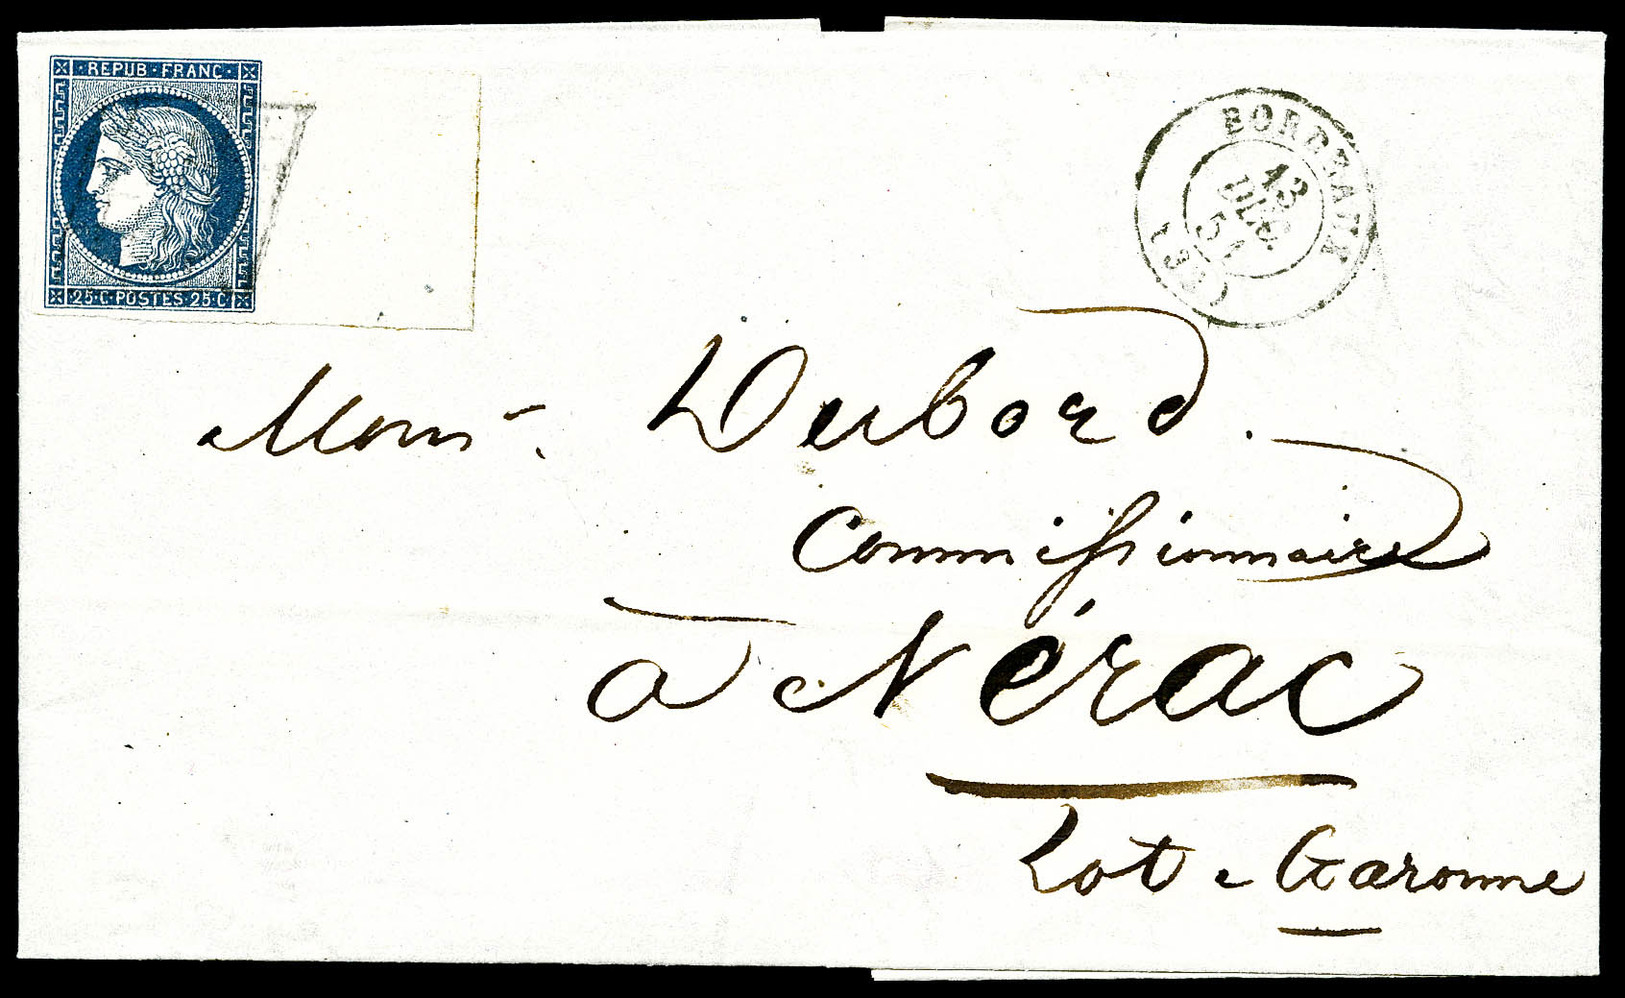 REPUB·FRANC·
25·C·POSTES·25·C
BORDEAUX
13
DEC.
51
(32)
Mons.
Dubord.
Commissionnaire
à Nérac
Lot-e-Garonne